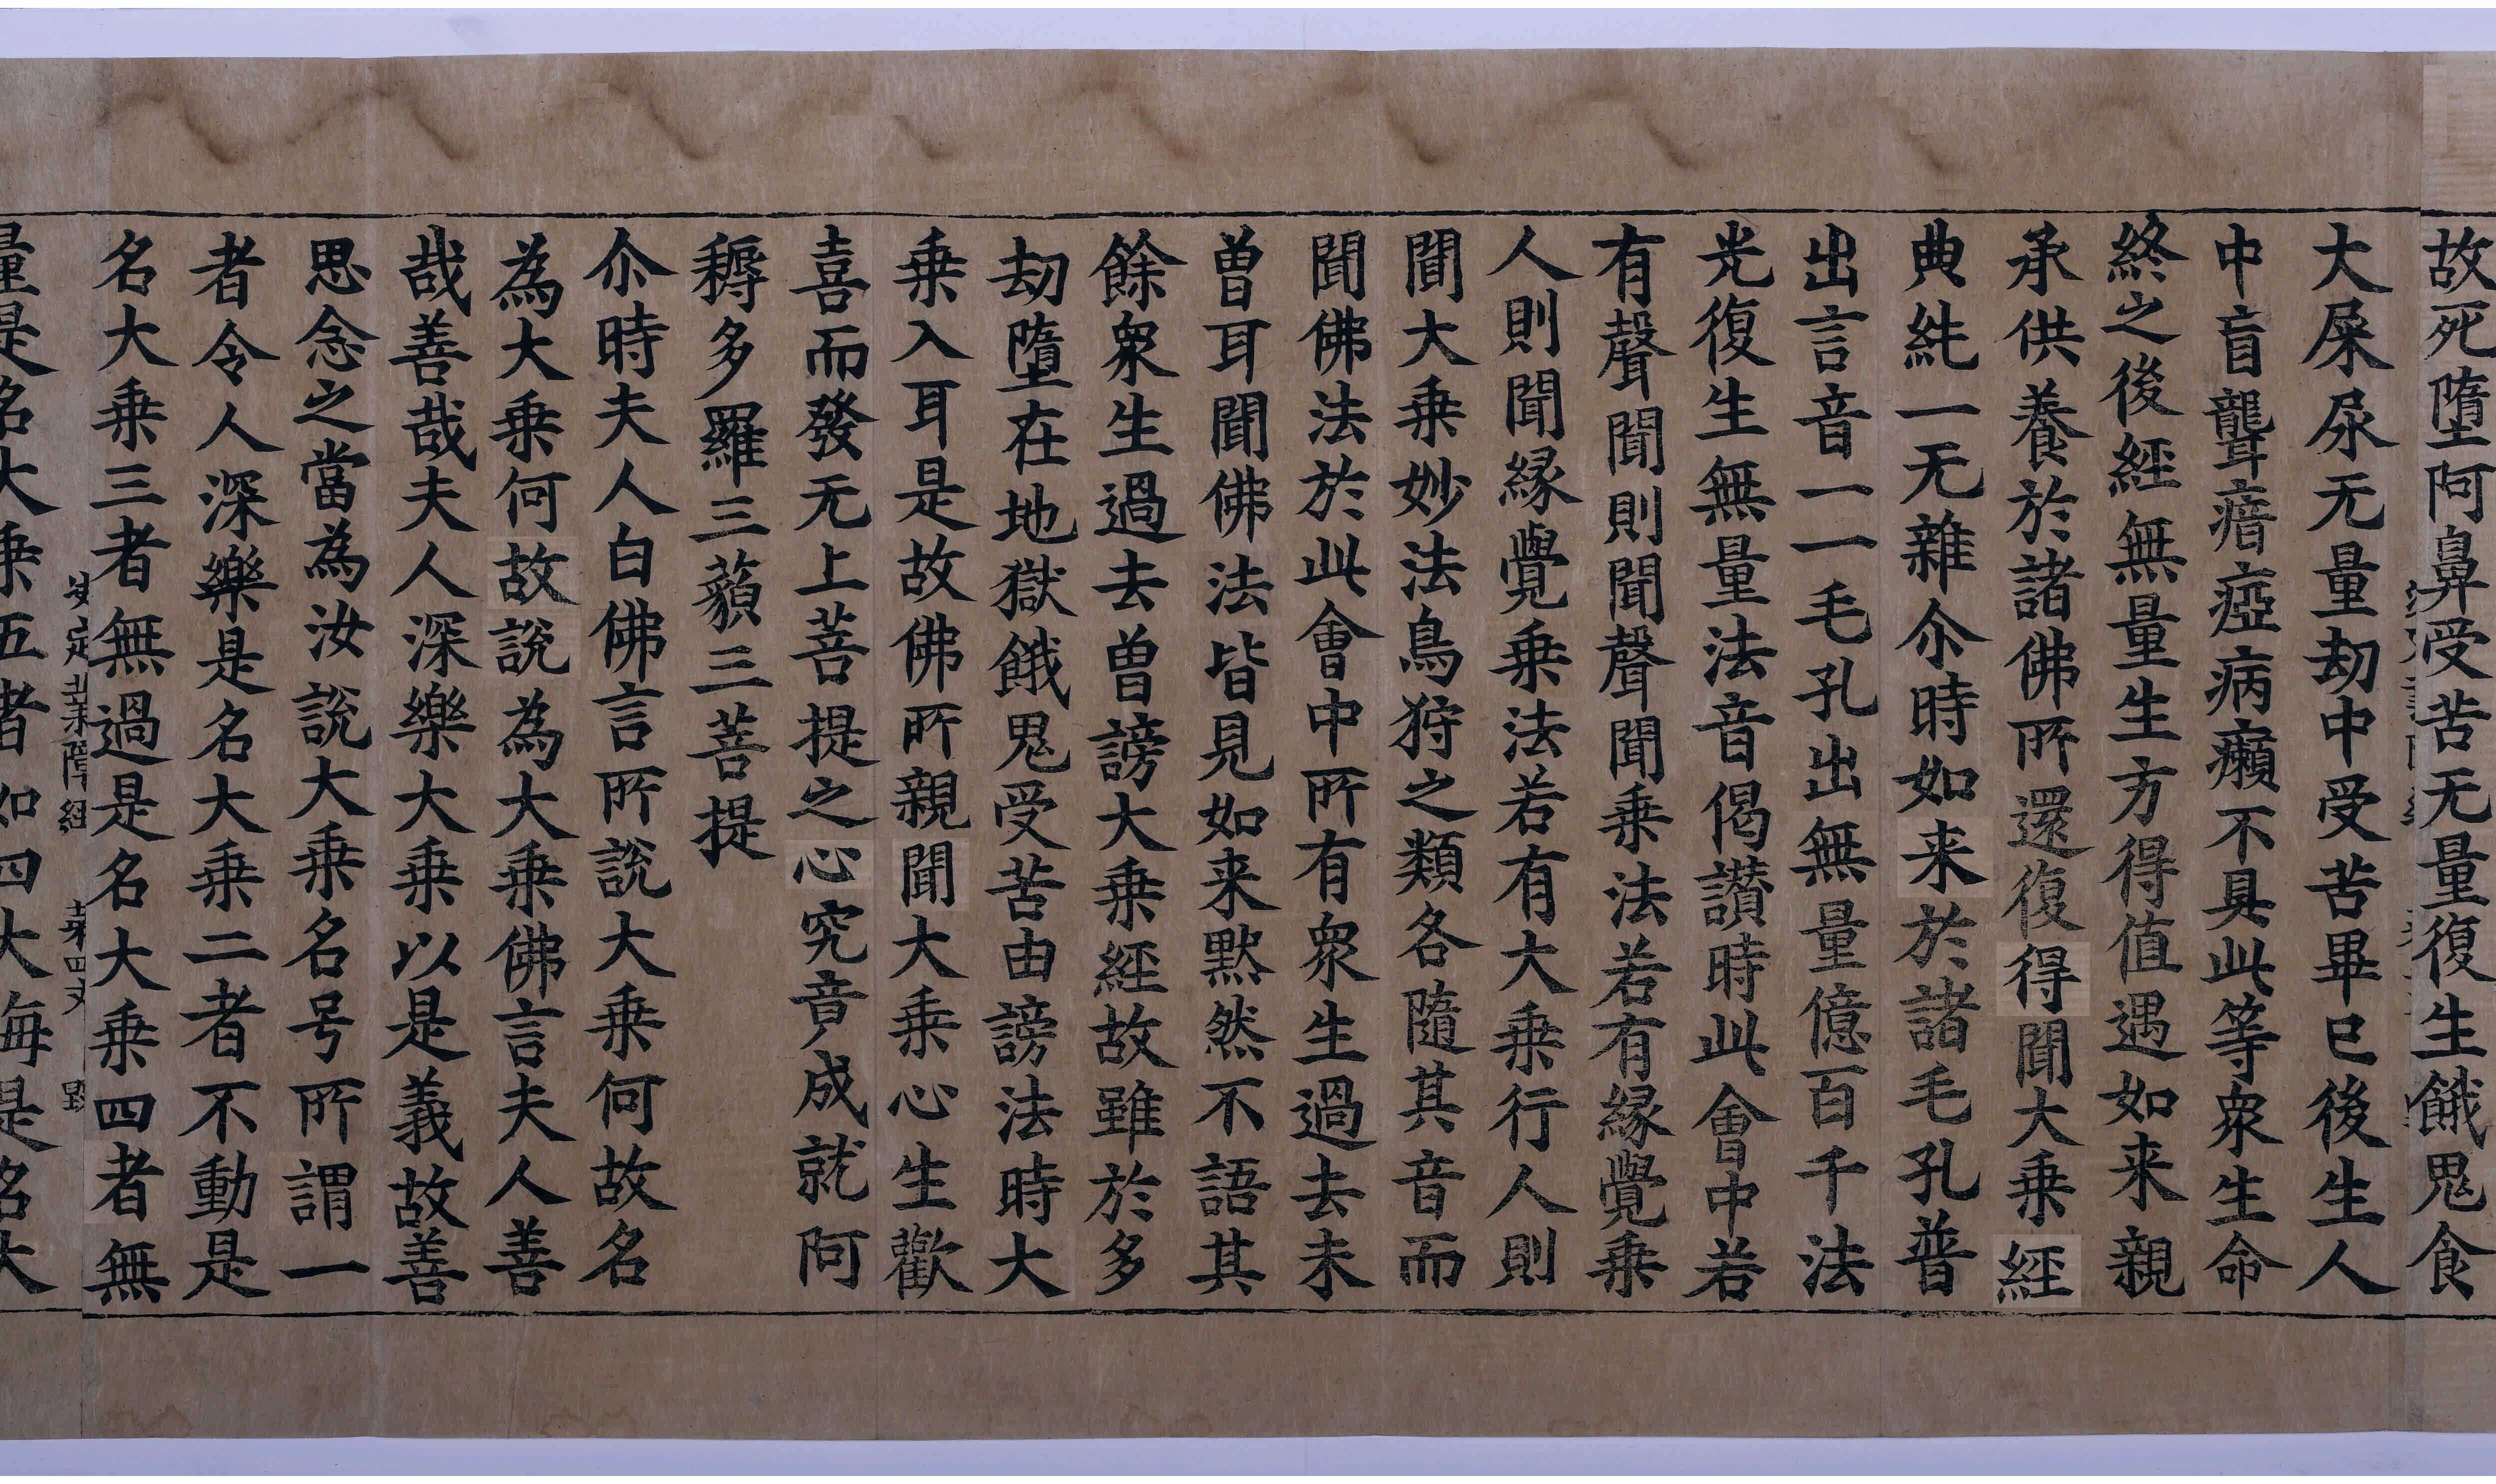 故死堕阿鼻受苦无量復生餓鬼食
大屎尿无量劫中受苦畢已後生人
中盲聾瘖瘂病癩不具此等衆生命
終之後經無量生方得值遇如来親
承供養於諸佛所還復得聞大乗經
典純一无雜尒時如来於諸毛孔普
出言音一一毛孔出無量億百千法
光復生無量法音偈讃時此會中若
有聲聞聞則聞聲聞乗法若有縁覺乗
人則聞縁覺乗法若有大乗行人則
聞大乗妙法鳥狩之類各隨其音而
聞佛法於此會中所有衆生過去未
曽耳聞佛法皆見如来黙然不語其
餘衆生過去曽謗大乗經故雖於多
劫堕在地獄餓鬼受苦由謗法時大
乗入耳是故佛所親聞大乗心生歡
喜而發无上菩提之心究竟成就阿
耨多羅三藐三菩提
尒時夫人白佛言所說大乗何故名
為大乗何故說為大乗佛言夫人善
哉善哉夫人深樂大乗以是義故善
思念之當為汝說大乗名号所謂一
者令人深樂是名大乗二者不動是
名大乗三者無過是名大乗四者無
定業障經 第四丈
量是名大乗五者如四大海是名大